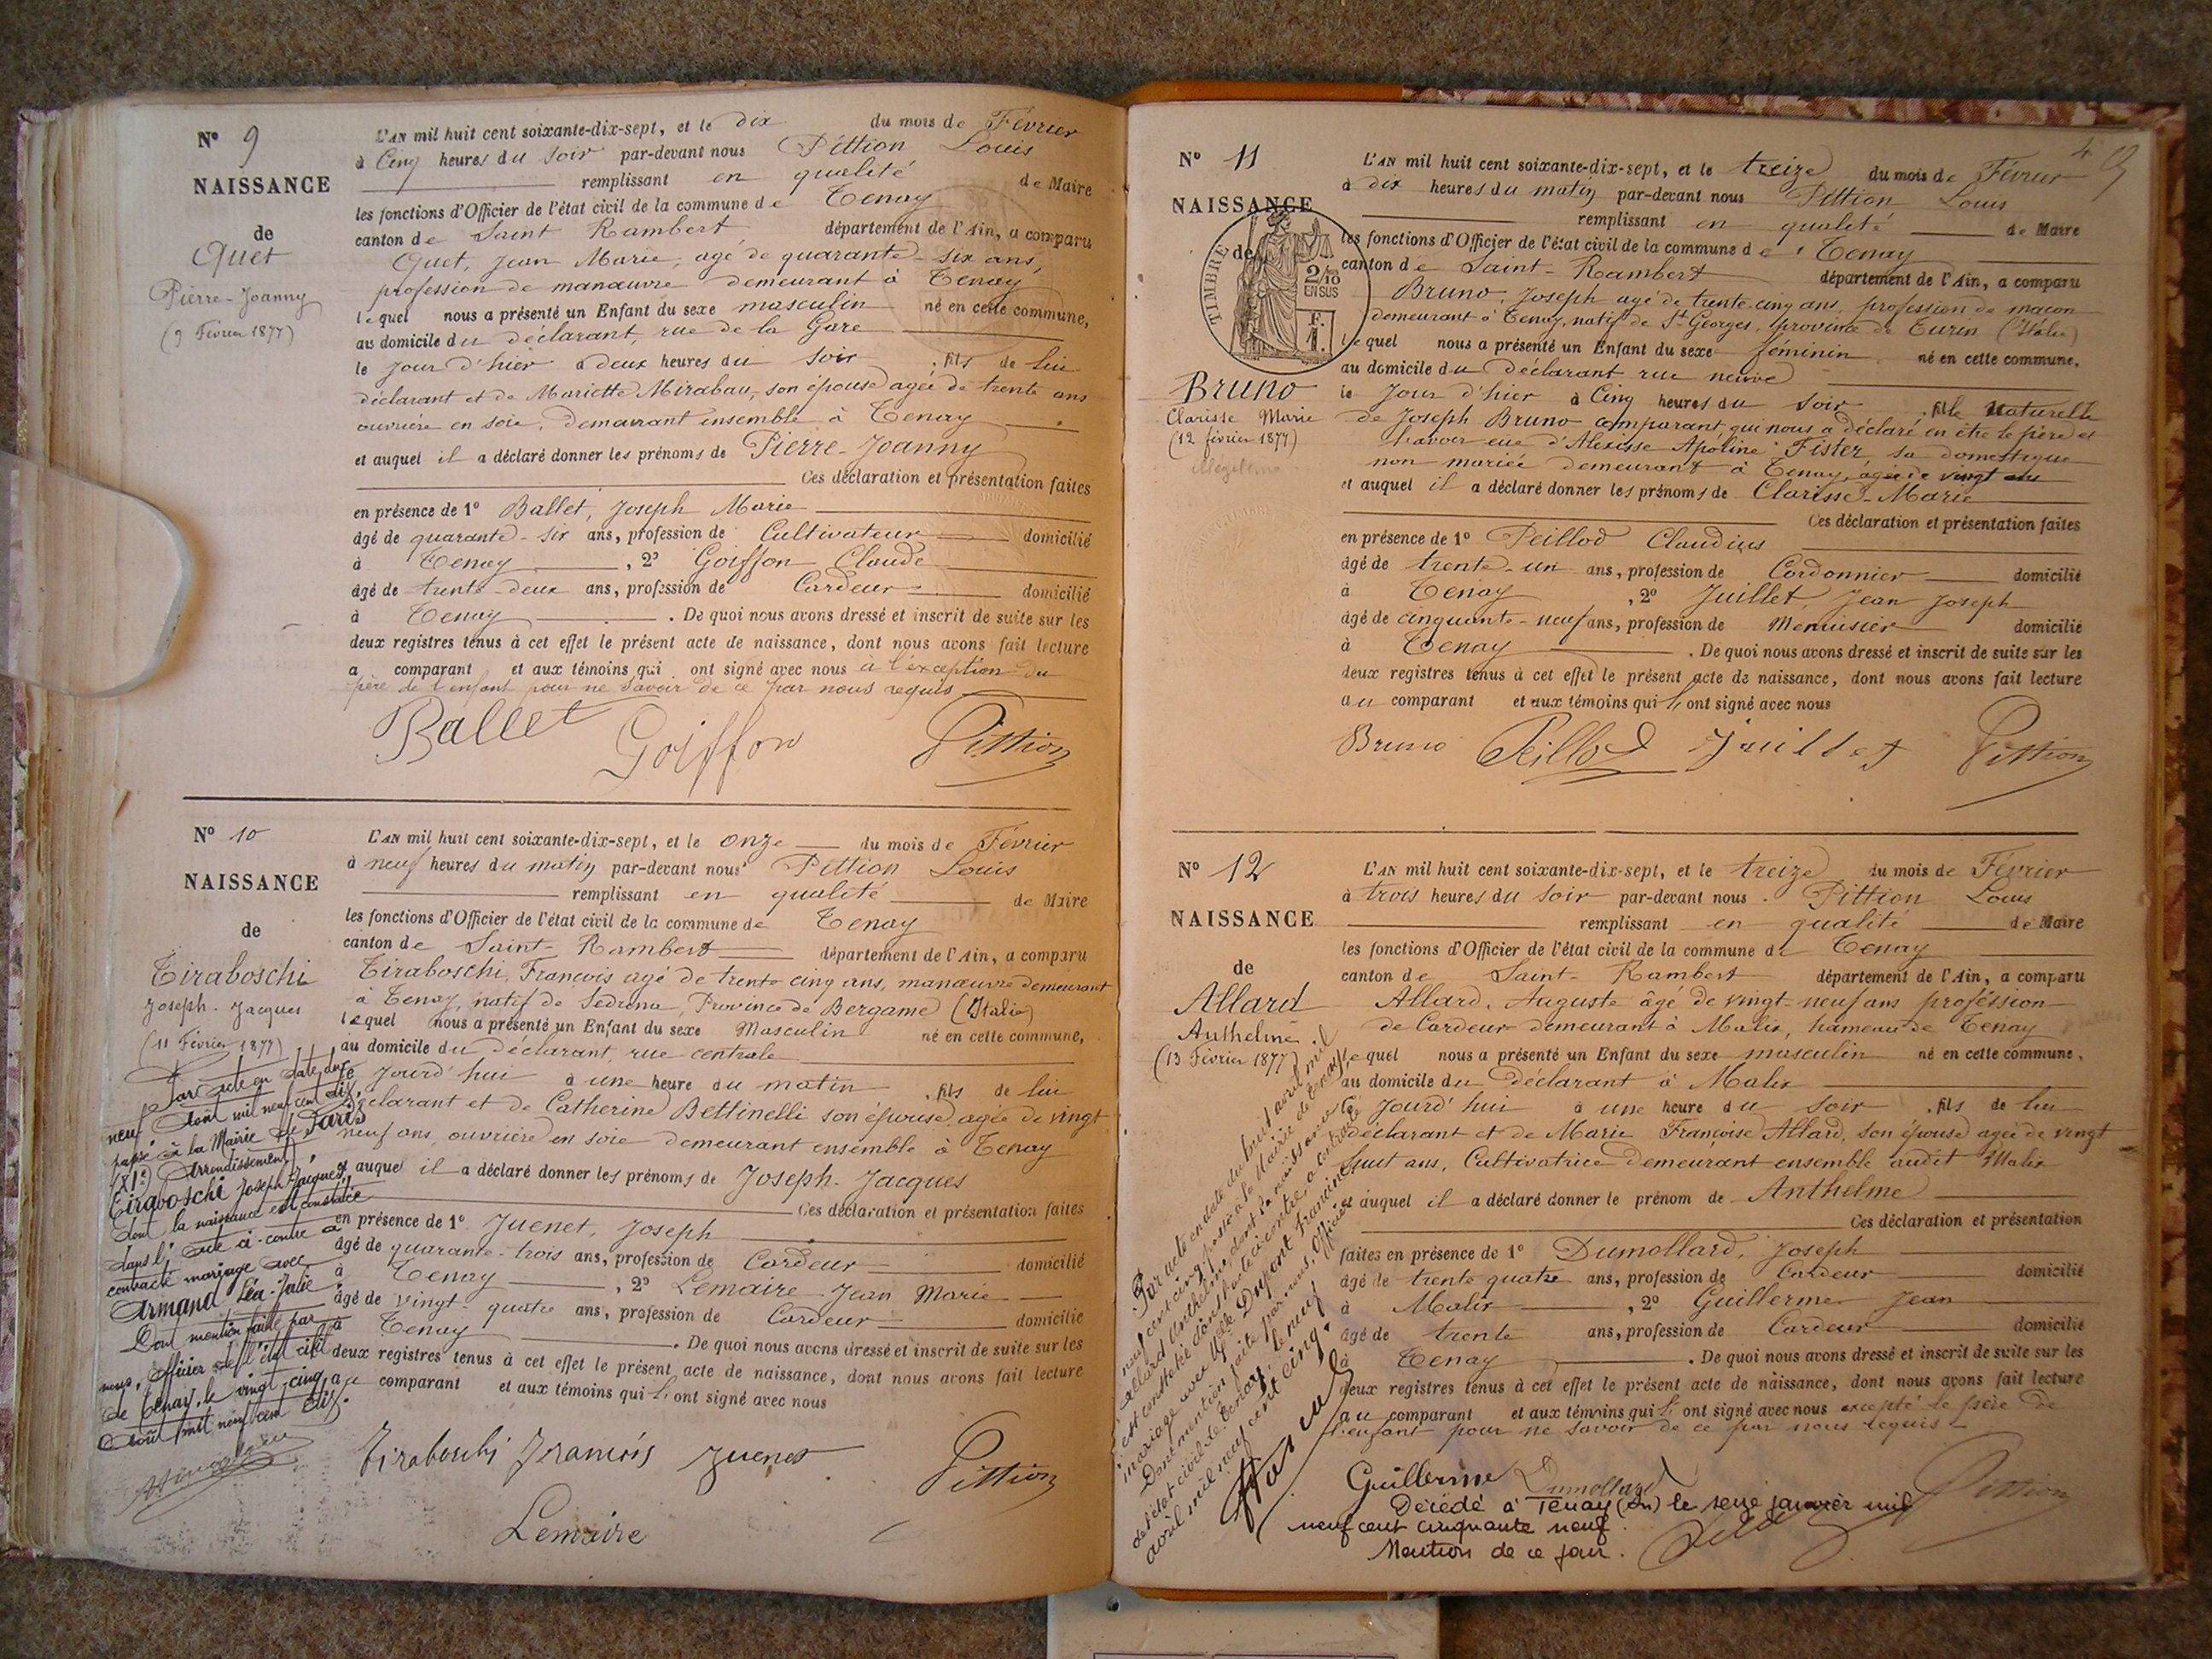 N° 9
NAISSANCE
de
Quet
Pierre-Joanny
(9 Février 1877)
L'AN mil huit cent soixante-dix-sept, et le dix du mois de Février
à Cinq heures du Soir par-devant nous Pittion Louis
remplissant en qualité de Maire
les fonctions d'Officier de l'état civil de la commune de Tenay
canton de Saint Rambert département de l'Ain, a comparu
Quet, Jean Marie, agé de quarante-six ans,
profession de manœuvre demeurant à Tenay
lequel nous a présenté un Enfant du sexe masculin né en cette commune,
au domicile du déclarant, rue de la Gare
le jour d'hier à deux heures du Soir, fils de lui
déclarant et de Mariette Mirabau, son épouse agée de trente ans
ouvrière en soie, demeurant ensemble à Tenay
et auquel il a déclaré donner les prénoms de Pierre-Joanny
Ces déclaration et présentation faites
en présence de 1° Ballet, Joseph Marie
âgé de quarante-six ans, profession de Cultivateur domicilié
à Tenay, 2° Goiffon Claude
âgé de trente-deux ans, profession de Cardeur domicilié
à Tenay. De quoi nous avons dressé et inscrit de suite sur les
deux registres tenus à cet effet le présent acte de naissance, dont nous avons fait lecture
a comparant et aux témoins qui ont signé avec nous à l'exception du
père de l'enfant pour ne savoir de ce par nous requis
Ballet Goiffon Pittion
N° 10
NAISSANCE
de
Tiraboschi
Joseph-Jacques
(11 Février 1877)
Par acte en date du
neuf Août mil neuf cent dix,
passé à la Mairie de Paris
(XIe Arrondissement)
Tiraboschi Joseph Jacques,
dont la naissance est constatée
dans l'acte ci-contre a
contracté mariage avec
Armand Léa-Julie
Dont mention faite par
nous, officier de l'état civil
de Tenay, le vingt cinq
Août mil neuf cent dix.
L'AN mil huit cent soixante-dix-sept, et le onze du mois de Février
à neuf heures du matin par-devant nous Pittion Louis
remplissant en qualité de Maire
les fonctions d'Officier de l'état civil de la commune de Tenay
canton de Saint-Rambert département de l'Ain, a comparu
Tiraboschi, François agé de trente cinq ans, manœuvre demeurant
à Tenay, natif de Sedrina, Province de Bergame (Italie)
lequel nous a présenté un Enfant du sexe Masculin né en cette commune,
au domicile du déclarant, rue centrale
le jourd'hui à une heure du matin, fils de lui
déclarant et de Catherine Bettinelli son épouse agée de vingt
neuf ans, ouvrière en soie demeurant ensemble à Tenay
et auquel il a déclaré donner les prénoms de Joseph-Jacques
Ces déclaration et présentation faites
en présence de 1° Juenet, Joseph
âgé de quarante-trois ans, profession de Cardeur domicilié
à Tenay, 2° Lemaire Jean Marie
âgé de vingt-quatre ans, profession de Cardeur domicilié
à Tenay. De quoi nous avons dressé et inscrit de suite sur les
deux registres tenus à cet effet le présent acte de naissance, dont nous avons fait lecture
au comparant et aux témoins qui ont signé avec nous
Tiraboschi François Juenet Pittion
Lemaire
N° 11
NAISSANCE
de
TIMBRE
2/10
EN SUS
F.
1.
Bruno
Clarisse Marie
(12 février 1877)
illégitime
4
L'AN mil huit cent soixante-dix-sept, et le treize du mois de Février
à dix heures du matin par-devant nous Pittion Louis
remplissant en qualité de Maire
les fonctions d'Officier de l'état civil de la commune de Tenay
canton de Saint-Rambert département de l'Ain, a comparu
Bruno, Joseph agé de trente-cinq ans, profession de maçon
demeurant à Tenay, natif de St Georges, province de Turin (Italie)
lequel nous a présenté un Enfant du sexe féminin né en cette commune,
au domicile du déclarant rue neuve
le jour d'hier à Cinq heures du Soir, fille naturelle
de Joseph Bruno comparant qui nous a déclaré en être le père et
l'avoir eue d'Alexisse Apoline Fister, sa domestique
non mariée demeurant à Tenay, agée de vingt ans
et auquel il a déclaré donner les prénoms de Clarisse-Marie
Ces déclaration et présentation faites
en présence de 1° Peillod Claudius
âgé de trente-un ans, profession de Cordonnier domicilié
à Tenay, 2° Juillet, Jean Joseph
âgé de cinquante-neuf ans, profession de Menuisier domicilié
à Tenay. De quoi nous avons dressé et inscrit de suite sur les
deux registres tenus à cet effet le présent acte de naissance, dont nous avons fait lecture
au comparant et aux témoins qui ont signé avec nous
Bruno Peillod Juillet Pittion
N° 12
NAISSANCE
de
Allard
Anthelme
(13 Février 1877)
Par acte en date du huit avril mil
neuf cent cinq, passé à la Mairie de Tenay,
Allard Anthelme, dont la naissance
est constatée dans l'acte ci-contre, a contracté
mariage avec Mlle Dupont Francine
Dont mention faite par nous, officier
de l'état civil de Tenay, le neuf
avril mil neuf cent cinq.
L'AN mil huit cent soixante-dix-sept, et le treize du mois de Février
à trois heures du Soir par-devant nous Pittion Louis
remplissant en qualité de Maire
les fonctions d'Officier de l'état civil de la commune de Tenay
canton de Saint-Rambert département de l'Ain, a comparu
Allard, Auguste âgé de vingt-neuf ans profession
de Cardeur demeurant à Malix, hameau de Tenay
lequel nous a présenté un Enfant du sexe masculin né en cette commune,
au domicile du déclarant à Malix
le jourd'hui à une heure du Soir, fils de lui
déclarant et de Marie Françoise Allard, son épouse agée de vingt
huit ans, Cultivatrice demeurant ensemble audit Malix
et auquel il a déclaré donner le prénom de Anthelme
Ces déclaration et présentation
faites en présence de 1° Dumollard, Joseph
âgé de trente quatre ans, profession de Cardeur domicilié
à Malix, 2° Guillerme Jean
âgé de trente ans, profession de Cardeur domicilié
à Tenay. De quoi nous avons dressé et inscrit de suite sur les
deux registres tenus à cet effet le présent acte de naissance, dont nous avons fait lecture
au comparant et aux témoins qui ont signé avec nous excepté le père de
l'enfant pour ne savoir de ce par nous requis
Guillerme Dumollard Pittion
Décédé à Tenay (Ain) le seize janvier mil
neuf cent cinquante neuf.
Mention de ce jour.